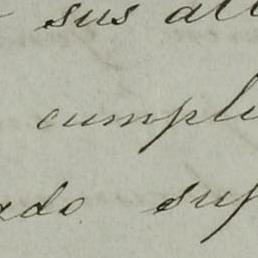 sus all
cumpli
ado sup